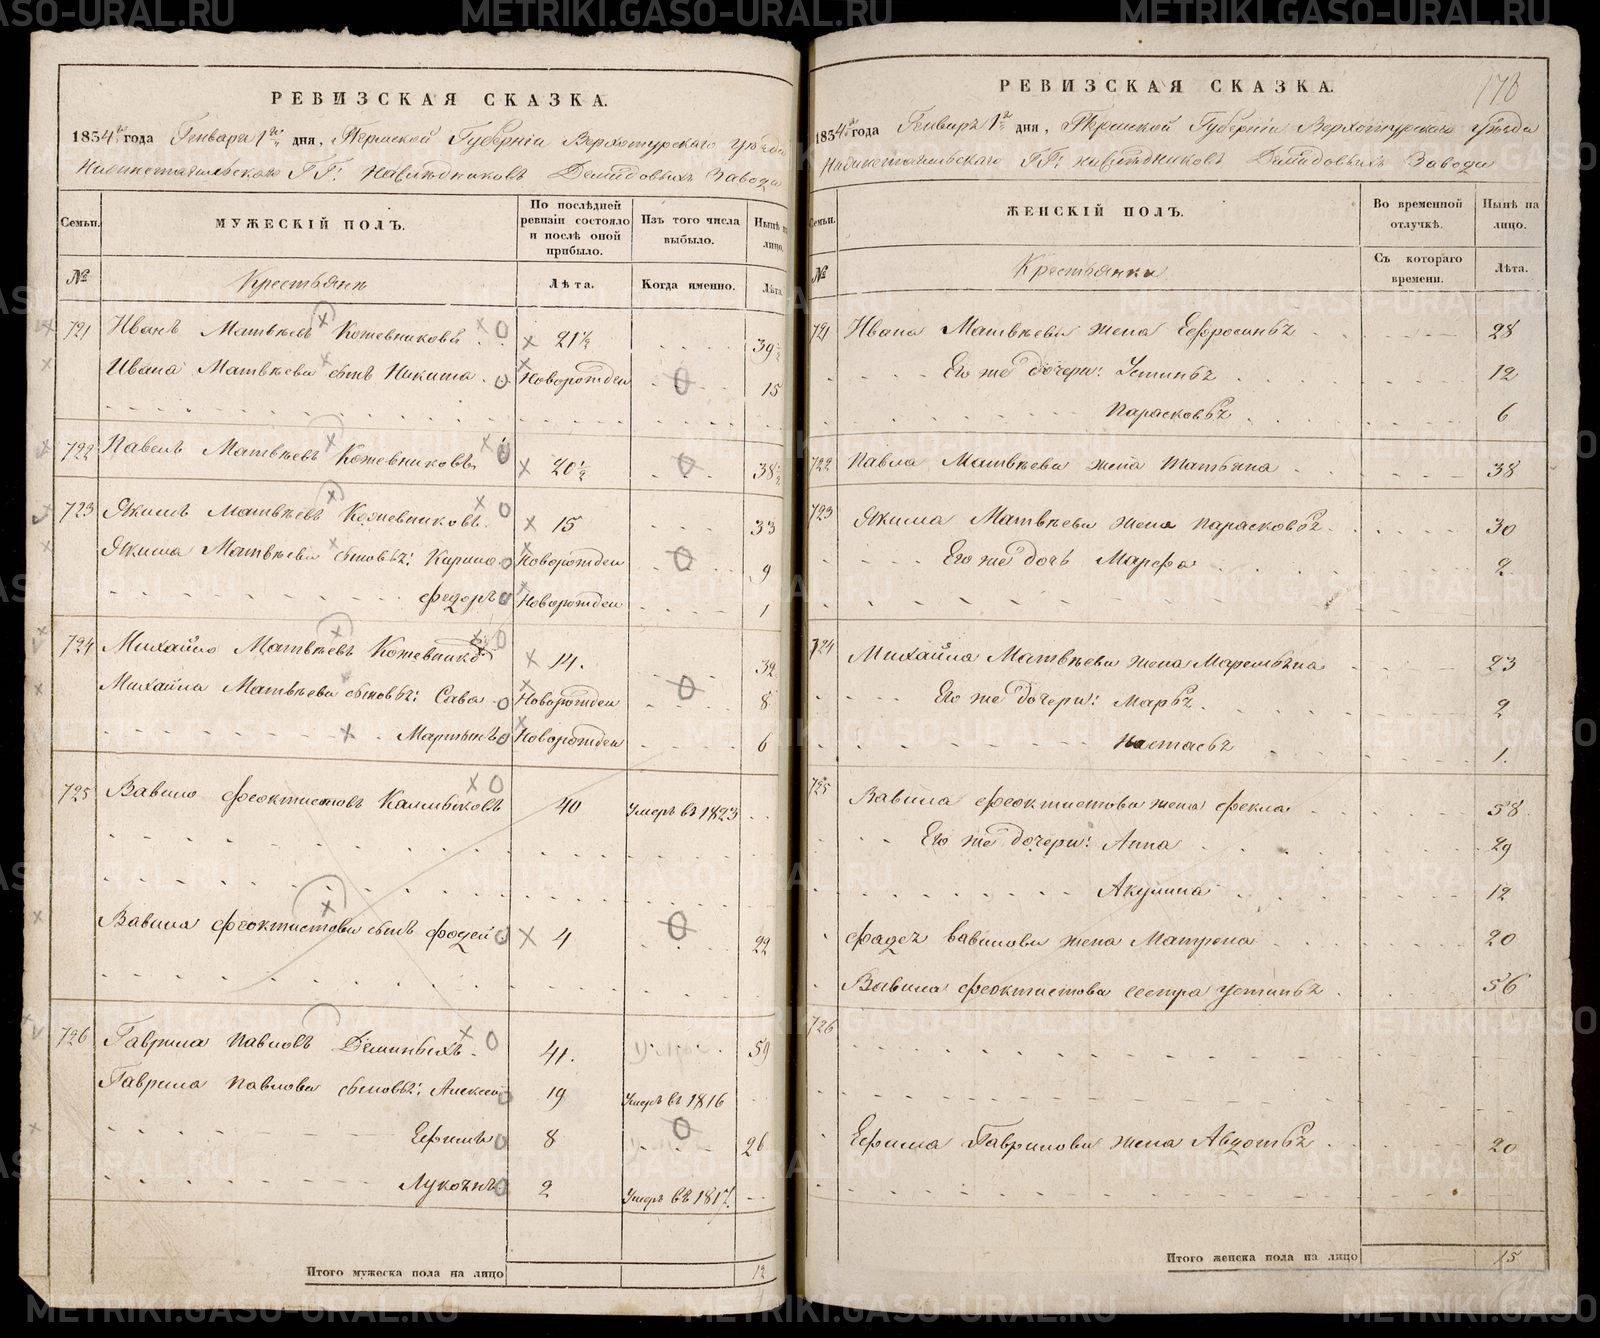 РЕВИЗСКАЯ СКАЗКА.
1834го года Генваря 1го дня, Пермской Губерніи Верхотурскаго уѣзда
Нижнетагильскаго ГГ: наслѣдниковъ Демидовыхъ Завода
Семьи.
МУЖЕСКІЙ ПОЛЪ.
По послѣдней ревизіи состояло и послѣ оной прибыло.
Изъ того числа выбыло.
Нынѣ на лицо.
№
Крестьянъ
Лѣта.
Когда именно.
Лѣта
721 Иванъ Матвѣевъ Кожевниковъ 21½ 39½
Ивана Матвѣева сынъ Никита Новорожден 15
722 Павелъ Матвѣевъ Кожевниковъ 20½ 38½
723 Якимъ Матвѣевъ Кожевниковъ 15 33
Якима Матвѣева сыновья: Карпъ Новорожден 9
Федоръ Новорожден 1
724 Михайло Матвѣевъ Кожевников 14. 32
Михайла Матвѣева сыновья: Сава Новорожден 8
Мартынъ Новорожден 6
725 Вавило Феоктистовъ 40 Умеръ въ 1823
Вавила Феоктистова сынъ Фадей 4 22
726 Гаврила Павловъ 41. 59
Гаврила Павлова сыновья: Алексей 19 Умеръ въ 1816
Ефимъ 8 26
2 Умеръ въ 1817.
Итого мужеска пола на лицо 12
РЕВИЗСКАЯ СКАЗКА.
1834го года Генваря 1го дня, Пермской Губерніи Верхотурскаго уѣзда
Нижнетагильскаго ГГ: наслѣдниковъ Демидовыхъ Завода
Семьи.
ЖЕНСКІЙ ПОЛЪ.
Во временной отлучкѣ.
Нынѣ на лицо.
№
Крестьянки
Съ котораго времени.
Лѣта.
721 Ивана Матвѣева жена Ефросинья 28
Его же дочери: Устинья 12
Парасковья 6
722 Павла Матвѣева жена Татьяна 38
723 Якима Матвѣева жена Парасковья 30
Его же дочь Марфа 2
724 Михайла Матвѣева жена Маремьяна 23
Его же дочери: Марья 2
Настасья 1.
725 Вавила Феоктистова жена Фекла 58
Его же дочери: Анна 29
Акулина 12
Фадея Вавилова жена Матрена 20
Вавила Феоктистова сестра Устинья 56
726
Ефима Гаврилова жена Авдотья 20
Итого женска пола на лицо 15
METRIKI.GASO-URAL.RU